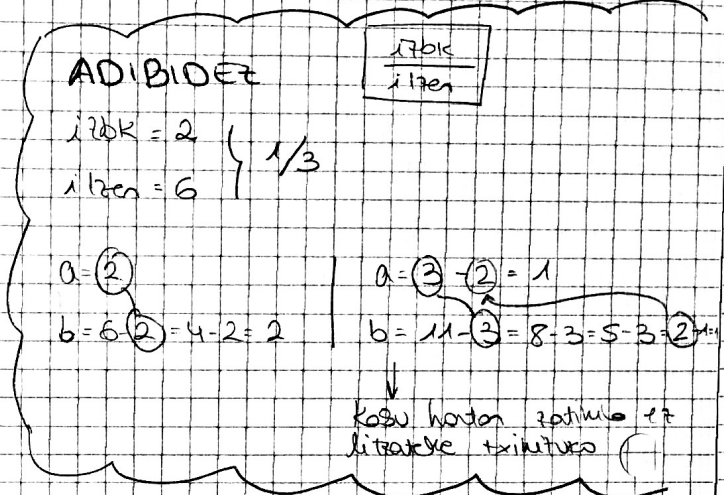 ADIBIDEZ
izbk
ilzen
izbk = 2
ilzen = 6
1/3
a = 2
b = 6-2 = 4-2 = 2
a = 3 - 2 = 1
b = 11-3 = 8-3 = 5-3 = 2-1=1
↓
Kasu hontan zatikia ez
litzateke txikituko